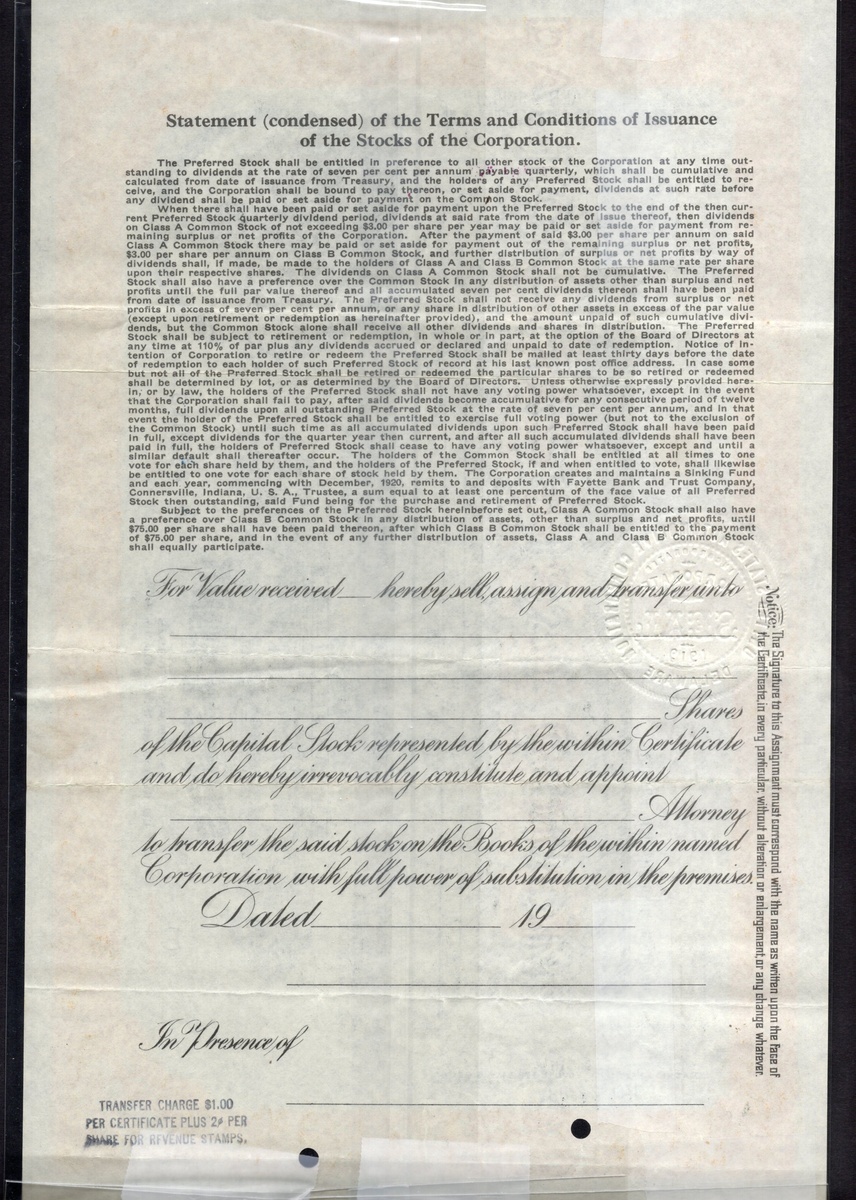 Statement (condensed) of the Terms and Conditions of Issuance
of the Stocks of the Corporation.
The Preferred Stock shall be entitled in preference to all other stock of the Corporation at any time out-
standing to dividends at the rate of seven per cent per annum payable quarterly, which shall be cumulative and
calculated from date of issuance from Treasury, and the holders of any Preferred Stock shall be entitled to re-
ceive, and the Corporation shall be bound to pay thereon, or set aside for payment, dividends at such rate before
any dividend shall be paid or set aside for payment on the Common Stock.
When there shall have been paid or set aside for payment upon the Preferred Stock to the end of the then cur-
rent Preferred Stock quarterly dividend period, dividends at said rate from the date of issue thereof, then dividends
on Class A Common Stock of not exceeding $3.00 per share per year may be paid or set aside for payment from re-
maining surplus or net profits of the Corporation. After the payment of said $3.00 per share per annum on said
Class A Common Stock there may be paid or set aside for payment out of the remaining surplus or net profits,
$3.00 per share per annum on Class B Common Stock, and further distribution of surplus or net profits by way of
dividends shall, if made, be made to the holders of Class A and Class B Common Stock at the same rate per share
upon their respective shares. The dividends on Class A Common Stock shall not be cumulative. The Preferred
Stock shall also have a preference over the Common Stock in any distribution of assets other than surplus and net
profits until the full par value thereof and all accumulated seven per cent dividends thereon shall have been paid
from date of issuance from Treasury. The Preferred Stock shall not receive any dividends from surplus or net
profits in excess of seven per cent per annum, or any share in distribution of other assets in excess of the par value
(except upon retirement or redemption as hereinafter provided), and the amount unpaid of such cumulative divi-
dends, but the Common Stock alone shall receive all other dividends and shares in distribution. The Preferred
Stock shall be subject to retirement or redemption, in whole or in part, at the option of the Board of Directors at
any time at 110% of par plus any dividends accrued or declared and unpaid to date of redemption. Notice of in-
tention of Corporation to retire or redeem the Preferred Stock shall be mailed at least thirty days before the date
of redemption to each holder of such Preferred Stock of record at his last known post office address. In case some
but not all of the Preferred Stock shall be retired or redeemed the particular shares to be so retired or redeemed
shall be determined by lot, or as determined by the Board of Directors. Unless otherwise expressly provided here-
in, or by law, the holders of the Preferred Stock shall not have any voting power whatsoever, except in the event
that the Corporation shall fail to pay, after said dividends become accumulative for any consecutive period of twelve
months, full dividends upon all outstanding Preferred Stock at the rate of seven per cent per annum, and in that
event the holder of the Preferred Stock shall be entitled to exercise full voting power (but not to the exclusion of
the Common Stock) until such time as all accumulated dividends upon such Preferred Stock shall have been paid
in full, except dividends for the quarter year then current, and after all such accumulated dividends shall have been
paid in full, the holders of Preferred Stock shall cease to have any voting power whatsoever, except and until a
similar default shall thereafter occur. The holders of the Common Stock shall be entitled at all times to one
vote for each share held by them, and the holders of the Preferred Stock, if and when entitled to vote, shall likewise
be entitled to one vote for each share of stock held by them. The Corporation creates and maintains a Sinking Fund
and each year, commencing with December, 1920, remits to and deposits with Fayette Bank and Trust Company,
Connersville, Indiana, U. S. A., Trustee, a sum equal to at least one percentum of the face value of all Preferred
Stock then outstanding, said Fund being for the purchase and retirement of Preferred Stock.
Subject to the preferences of the Preferred Stock hereinbefore set out, Class A Common Stock shall also have
a preference over Class B Common Stock in any distribution of assets, other than surplus and net profits, until
$75.00 per share shall have been paid thereon, after which Class B Common Stock shall be entitled to the payment
of $75.00 per share, and in the event of any further distribution of assets, Class A and Class B Common Stock
shall equally participate.
For Value received hereby sell, assign, and transfer unto
Shares
of the Capital Stock represented by the within Certificate
and do hereby irrevocably constitute and appoint
Attorney
to transfer the said stock on the Books of the within named
Corporation with full power of substitution in the premises.
Dated 19
In Presence of
Notice: The Signature to this Assignment must correspond with the name as written upon the face of
the Certificate, in every particular, without alteration or enlargement, or any change whatever.
TRANSFER CHARGE $1.00
PER CERTIFICATE PLUS 2¢ PER
SHARE FOR REVENUE STAMPS.